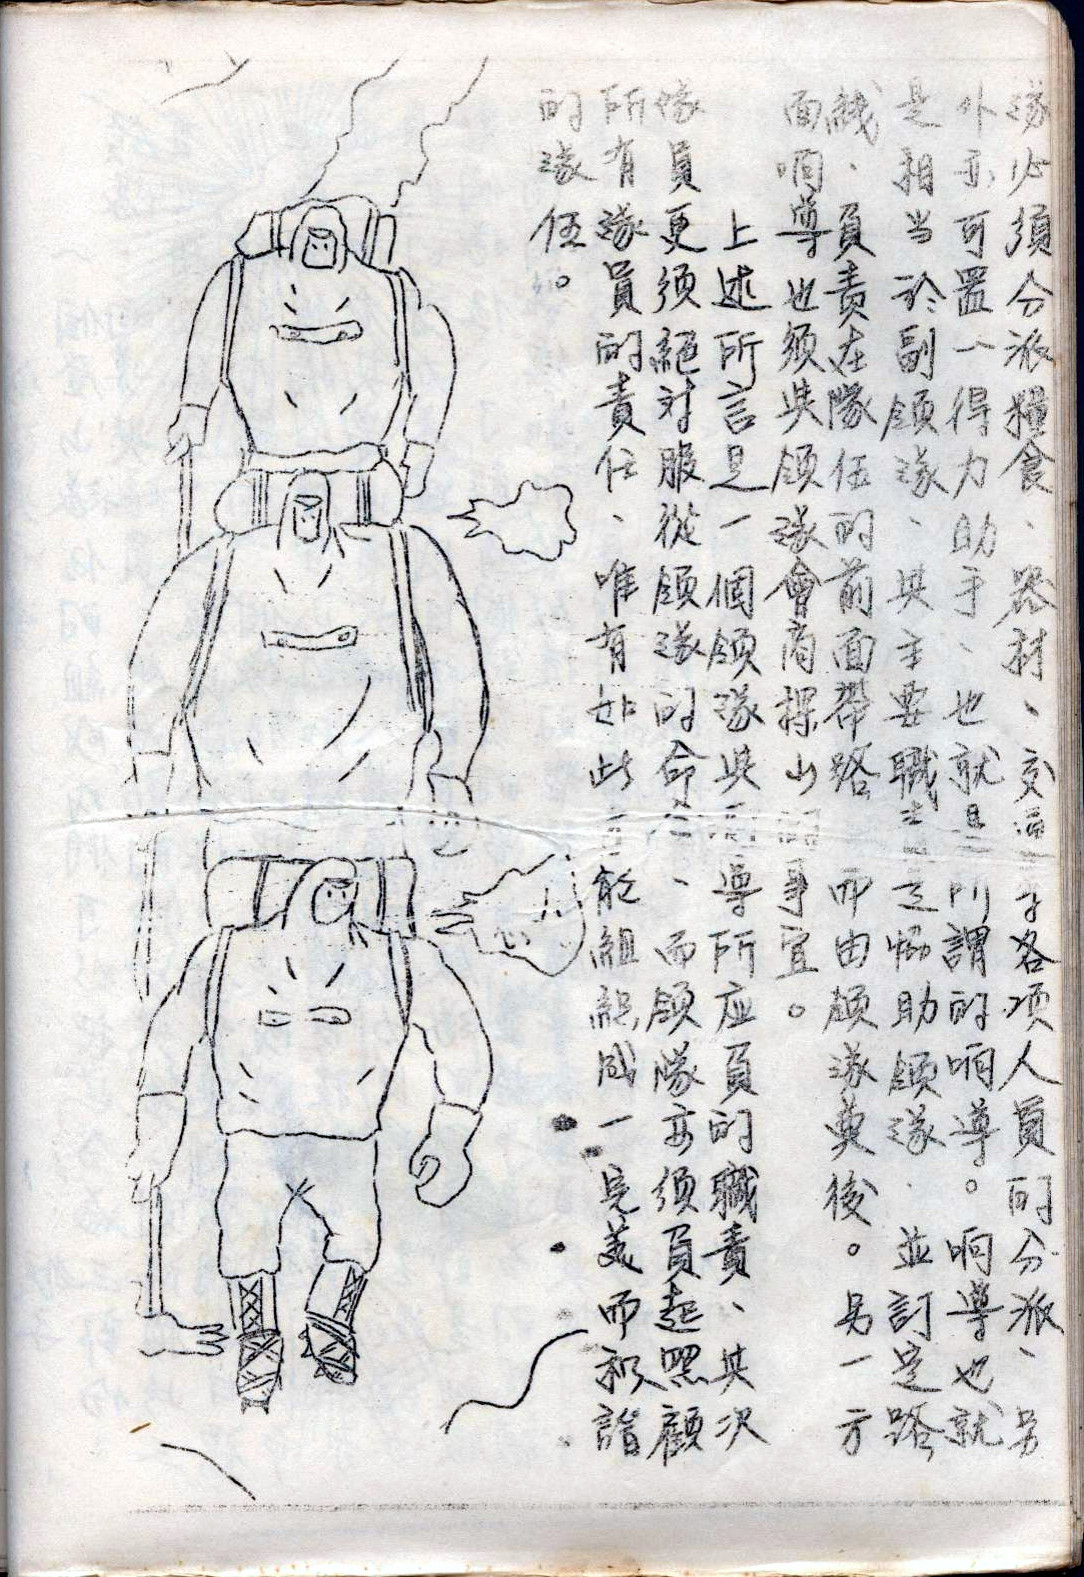 隊必須分派糧食、器材、交通等各項人員的分派、另
外亦可置一得力助手、也就是所謂的响導。响導也就
是相当於副領隊、其主要職責是協助領隊．並訂定路
綫．負責在隊伍的前面帶路 而由領隊奠後。另一方
面响導也須與領隊會商探山的事宜。
上述所言是一個領隊與响導所应負的職責、其次
隊員更须絕对服從領隊的命令、而領隊亦須負起照顧
所有隊員的責任、唯有如此 才能組織成一完美而和諧
的隊伍。